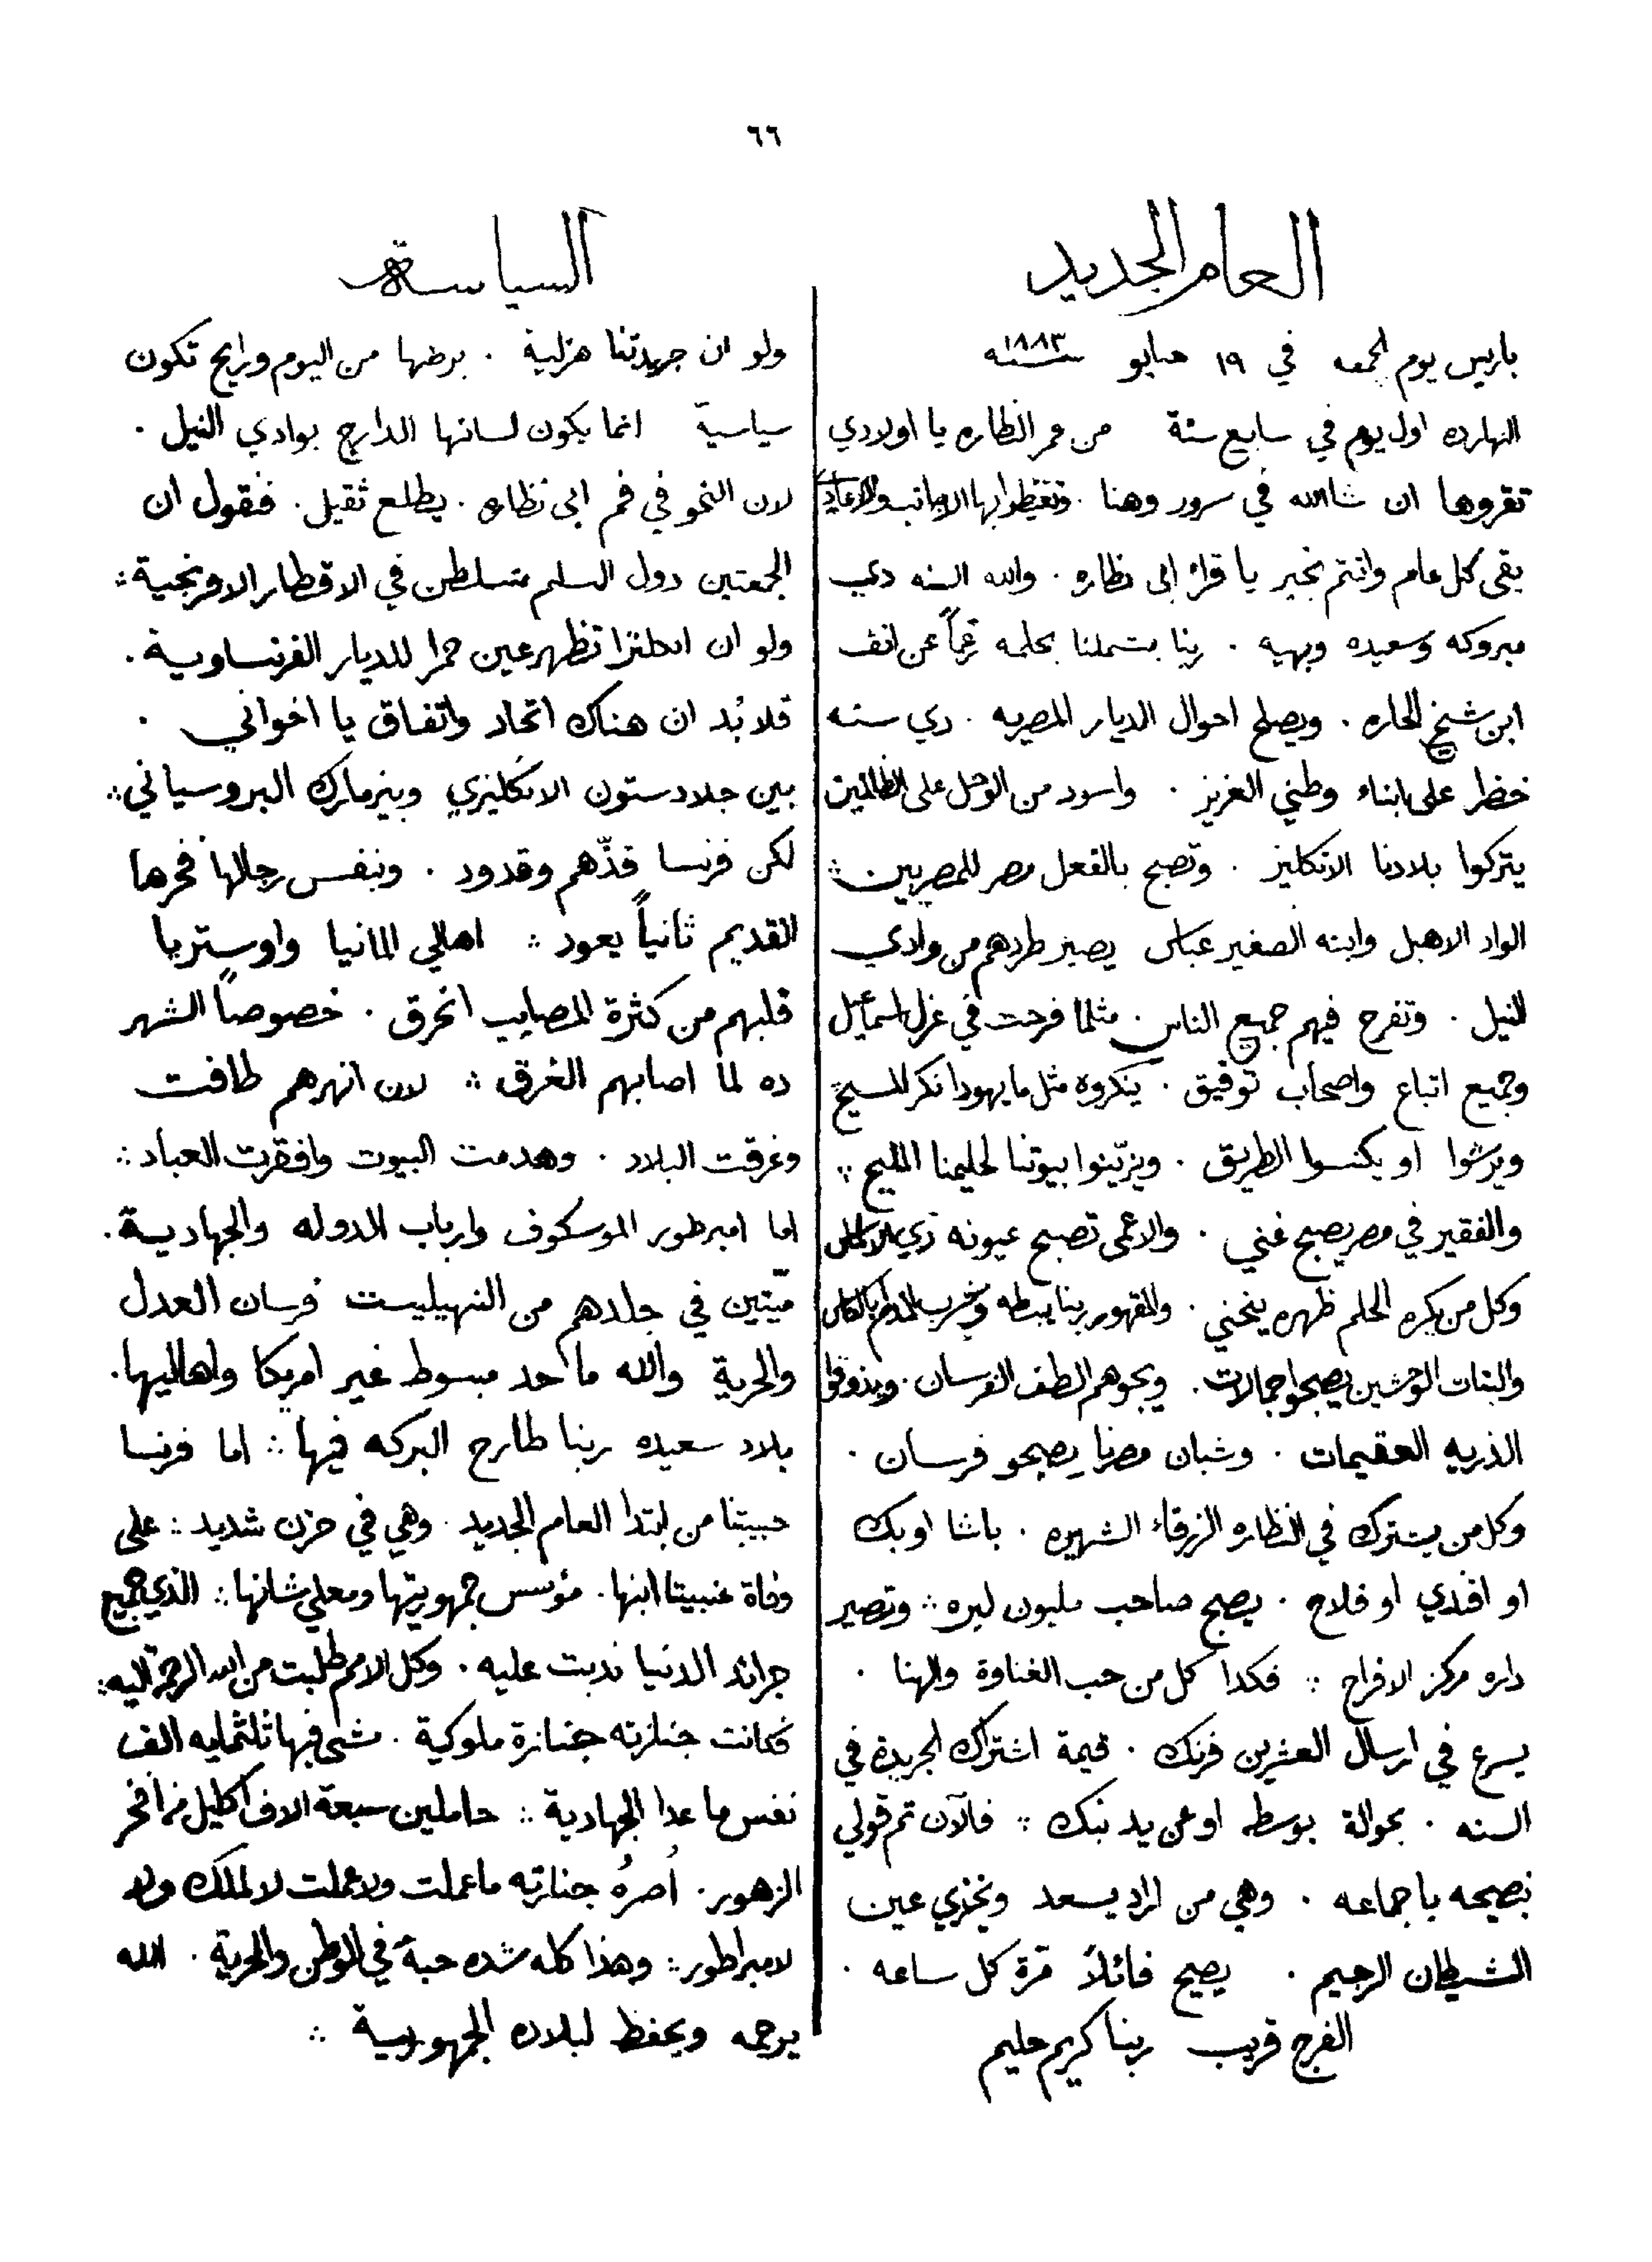 ٦٦
العام الجديد
باريس يوم الجمعه في ١٩ ينايو سنة ١٨٨٣
النهارده اول يوم في سابع سنة من عمر النظاره يا اولادي
تقروها ان شاالله في سرور وهنا . وتغيظوا بها الاجانب والاعادي
يقى كل عام وانتم بخير يا قراء ابي نظاره . والله السنه دي
مبروكه وسعيده وبهيه . ربنا يشملنا بحلمه رغماً عن انف
ابن شيخ الحاره . ويصلح احوال الديار المصريه . دي سنه
خضر على ابناء وطني العزيز . واسود من الوحل على الظالمين
يتركوا بلادنا الانكليز . وتصبح بالفعل مصر للمصريين ؞
الواد الاهبل وابنه الصغير عباس يصير طردهم من وادي
النيل . وتفرح فيهم جميع الناس . مثلما فرحت في عزل اسماعيل
وجميع اتباع واصحاب توفيق . ينكروه مثل ما يهودا نكر المسيح
ويرشوا او يكنسوا الطريق . ويزيّنوا بيوتنا لحليمنا المليح ؞
والفقير في مصر يصبح غني . والاعمى تصبح عيونه زي
وكل من يكره الحلم ظهره ينحني . والمقهور ربنا يبسطه ويشرب المدام بالكاس
والبنات الوحشين يصبحوا جمالات . ويجوهم الطف الفرسان . ويذوقوا
الذريه العقيمات . وشبان مصرنا يصبحو فرسان .
وكل من يشترك في النظاره الزرقاء الشهيره . باشا او بك
او افندي او فلاح . يصبح صاحب مليون ليره ؞ وتصير
داره مركز الافراح ؞ فكدا كل من حب الغناوة والهنا .
يسرع في ارسال العشرين فرنك . قيمة اشتراك الجريدة في
السنه . بحوالة بوسطه او عن يد بنك ؞ فالآن تم قولي
نصيحه يا جماعه . وهي من اراد يسعد ويخزي عين
الشيطان الرجيم . يصيح قائلاً مرة كل ساعه .
الفرج قريب ربنا كريم حليم
السياسة
ولو ان جريدتنا هزلية . برضها من اليوم ورايح تكون
سياسية انما يكون لسانها الدارج بوادي النيل .
لان النحو في فم ابي نظاره . يطلع ثقيل . فقول ان
الجمعتين دول السلم متسلطن في الاقطار الافرنجية ؞
ولو ان انحلترا تظهر عين حمرا للديار الفرنساوية .
فلا بُد ان هناك اتحاد واتفاق يا اخواني .
بين جلادستون الانكليزي وبيزمارك البروسياني ؞
لكن فرنسا قدّهم وقدود . وبنفس رجالها فخرها
القديم ثانياً يعود ؞ اهالي المانيا واوستريا
قلبهم من كثرة المصايب انحرق . خصوصاً الشهر
ده لما اصابهم الغرق ؞ لان انهرهم طافت
وغرقت البلاد . وهدمت البيوت وافقرت العباد ؞
اما امبرطور الموسكوف وارباب الدوله والجهادية .
ميّتين في جلدهم من النهيليست فرسان العدل
والحرية والله ما حد مبسوط غير امريكا واهاليها .
بلاد سعيده ربنا طارح البركه فيها ؞ اما فرنسا
حبيبتنا من ابتدا العام الجديد . وهي في حزن شديد ؞ على
وفاة غنبيتا ابنها . مؤسس جمهوريتها ومعلي شانها ؞ الذي جميع
جرائد الدنيا ندبت عليه . وكل الامم طلبت من الله الرحمة اليه ؞
فكانت جنازته جنازة ملوكية . مشى فيها ثلثمايه الف
نفس ما عدا الجهادية ؞ حاملين سبعة الاف اكليل من افخر
الزهور . جنازته ما عملت ولا عملت لا لملك ولا
لامبراطور ؞ وهذا كله شده حبه في الوطن والحرية . الله
يرحمه ويحفظ لبلاده الجمهورية ؞